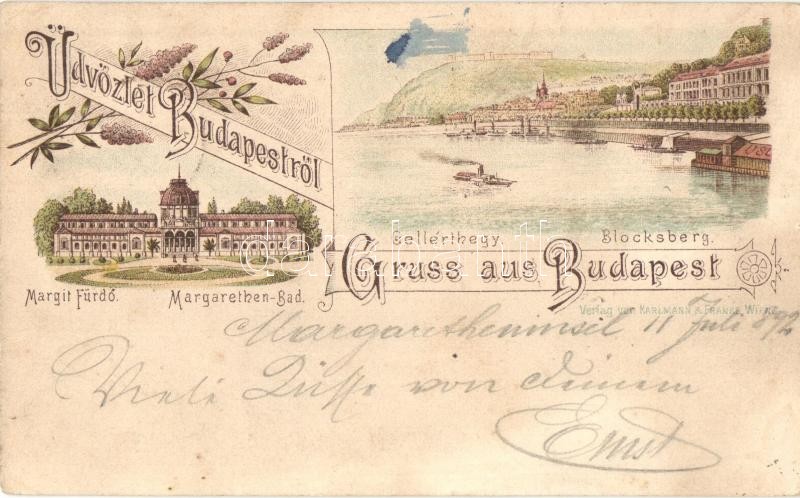 Üdvözlet
Budapestről
Gellérthegy. Blocksberg.
Margit Fürdő. Margarethen-Bad.
Gruss aus Budapest
Verlag von KARLMANN & FRANKE, WIEN.
Margaretheninsel 11 Juli 892
Viele Küsse von Deinem
Ernst